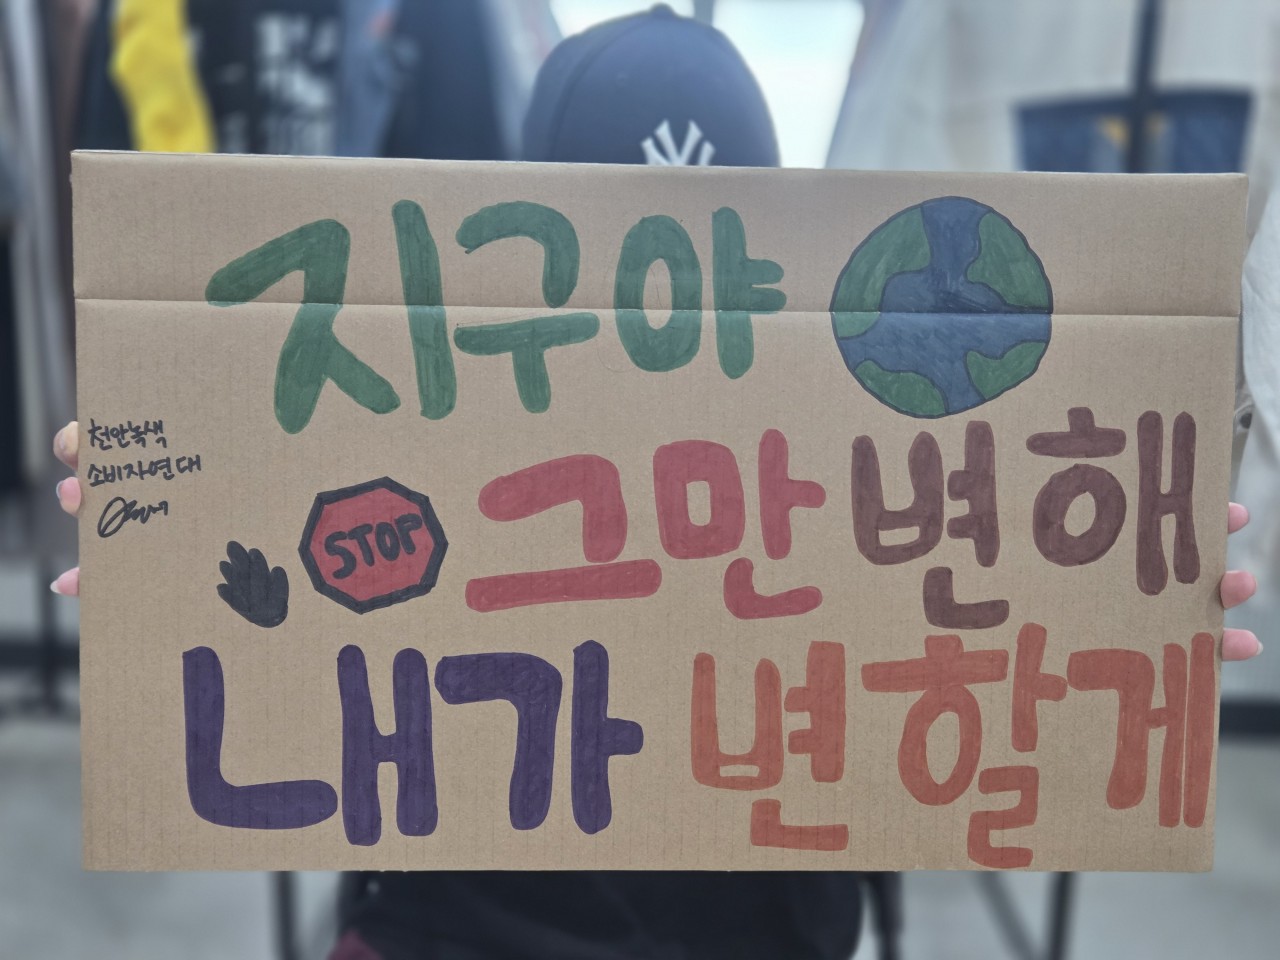 NY
지구야
천안녹색
소비자연대
STOP 그만 변해
내가 변할게